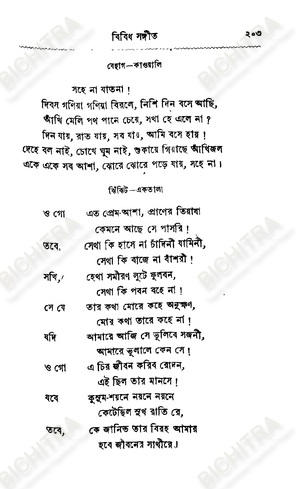 বিবিধ সঙ্গীত ২০৩
বেহাগ—কাওয়ালি
সহে না যাতনা!
দিবস গণিয়া গণিয়া বিরলে, নিশি দিন বসে আছি,
আঁখি মেলি পথ পানে চেয়ে, সখা হে এলে না?
দিন যায়, রাত যায়, সব যায়, আমি বসে হায়!
দেহে বল নাই, চোখে ঘুম নাই, শুকায়ে গিয়াছে আঁখিজল
একে একে সব আশা, ঝোরে ঝোরে পড়ে যায়, সহে না।
ঝিঁঝিট—একতালা
ও গো এত প্রেম-আশা, প্রাণের তিয়াষা
কেমনে আছে সে পাসরি!
তবে, সেথা কি হাসে না চাঁদিনী যামিনী,
সেথা কি বাজে না বাঁশরী!
সখি, হেথা সমীরণ লুটে ফুলবন,
সেথা কি পবন বহে না!
সে যে তার কথা মোরে কহে অনুক্ষণ,
মোর কথা তারে কহে না!
যদি আমারে আজি সে ভুলিবে সজনী,
আমারে ভুলালে কেন সে!
ও গো এ চির জীবন করিব রোদন,
এই ছিল তার মানসে!
যবে কুসুম-শয়নে নয়নে নয়নে
কেটেছিল সুখ রাতি রে,
তবে, কে জানিত তার বিরহ আমার
হবে জীবনের সাথীরে।
BICHITRA